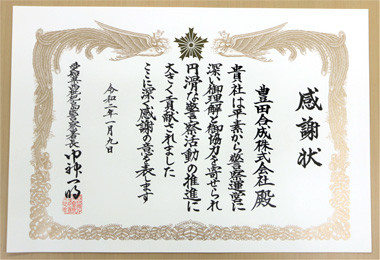 感謝状
豊田合成株式会社 殿
貴社は平素から警察運営に
深い御理解と御協力を寄せられ
円滑な警察活動の推進に
大きく貢献されました
ここに深く感謝の意を表します
令和二年一月九日
愛知県稲沢警察署長